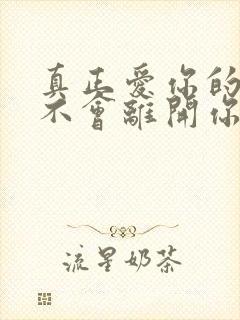 真正愛你的
不會離開你
流星奶茶